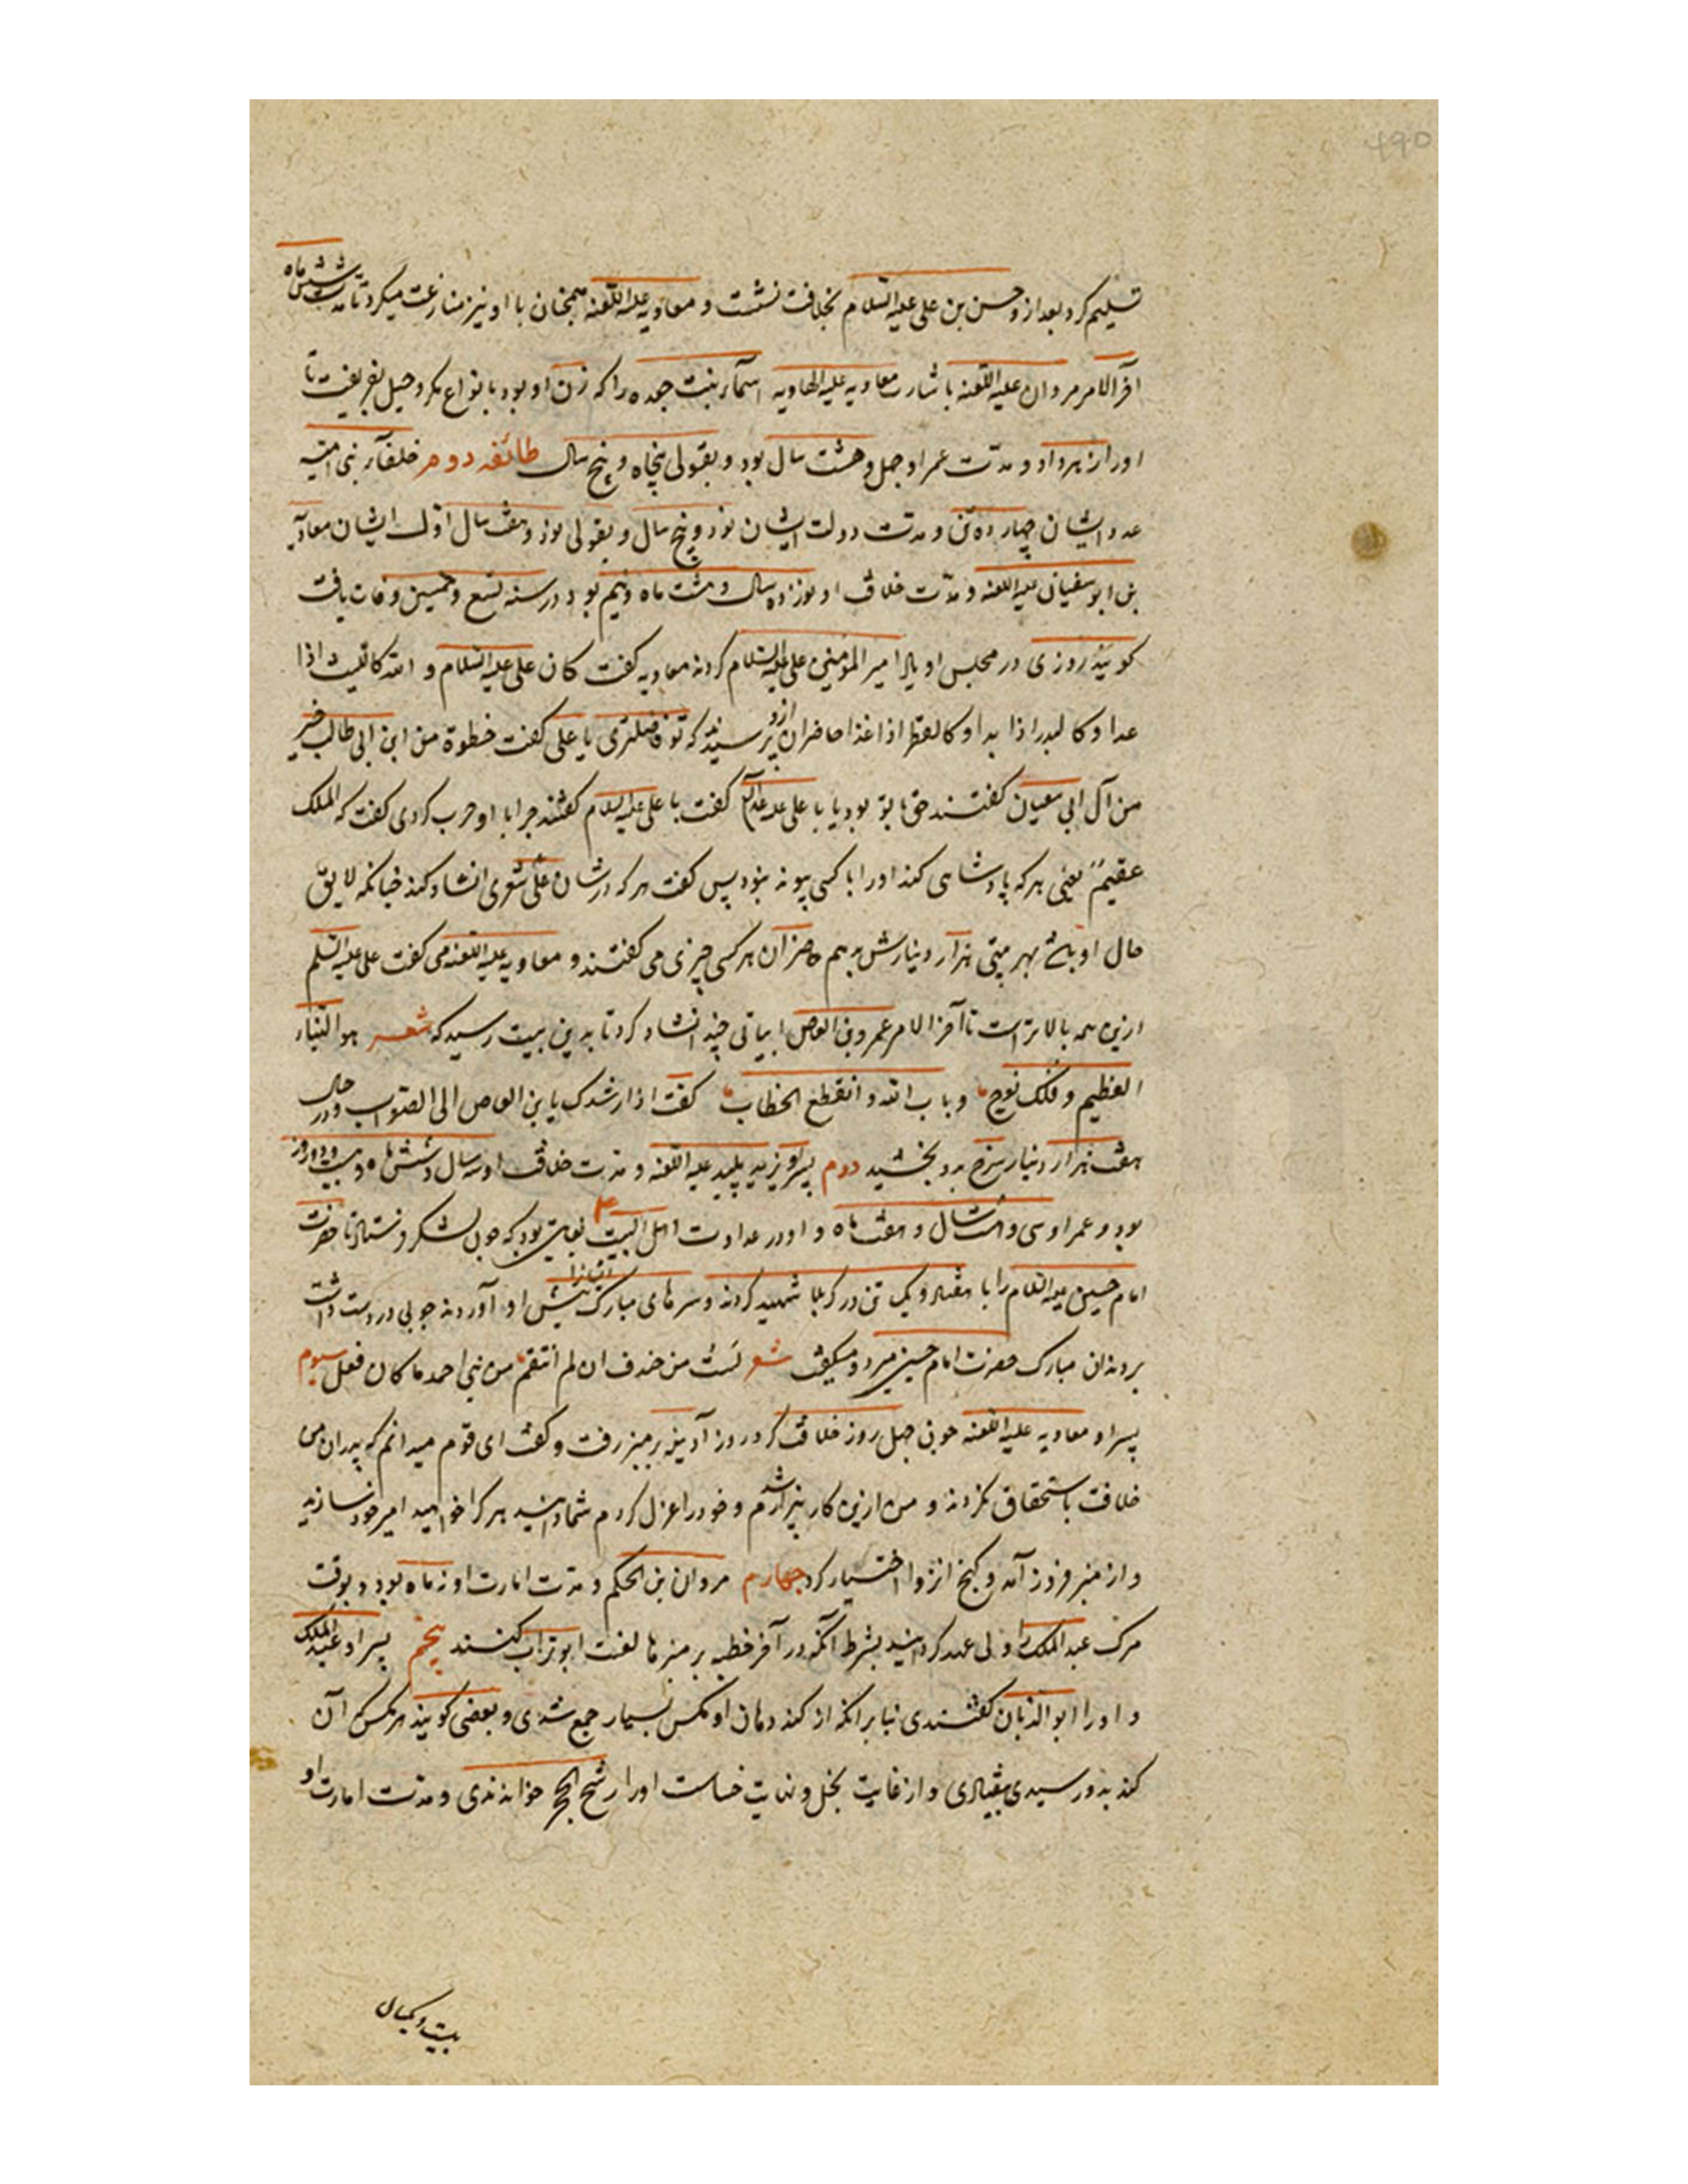 ۴۹۵
تسلیم کرد بعد از و حسن بن علی علیه السلام بخلافت نشست و معاویه علیه اللعنه همچنان با او نیز منازعت میکرد تا مدت شش ماه
آخر الامر مروان علیه اللعنه باشارت معاویه علیه الهاویه اسماء بنت جعده را که زن او بود بانواع مکر و حیل بفریفت تا
اورا زهر داد و مدت عمر او چهل و هشت سال بود و بقولی پنجاه و پنج سال طائفه دوم خلفآء بنی امیه
عدد ایشان چهارده تن و مدت دولت ایشان نود و پنج سال و بقولی نود و هفت سال اول ایشان معاویه
بن ابو سفیان علیه اللعنه و مدت خلافت او نوزده سال و هشت ماه و نیم بود در سنه تسع و خمسین وفات یافت
کویند روزی در مجلس او یاد امیر المؤمنین علی علیه السلام کردند معاویه کفت کان علی علیه السلام و الله کاللیث اذا
عدا و کالبدر اذا بدا و کالمطر اذا غذا حاضران ازو پرسیدند که تو فاضلتری یا علی کفت خطوة من ابن ابی طالب خیر
من آل ابی سفیان کفتند حق با تو بود یا با علی علیه السلام کفت با علی علیه السلام کفتند چرا با او حرب کردی کفت که الملک
عقیمٌ یعنی هر که پادشاهی کند اورا با کسی پیوند نبود پس کفت هر که در شان علی شعری انشاد کند چنانکه لایق
حال او باشد بهر بیتی هزار دینارش بدهم حاضران هر کسی چیزی می کفتند و معاویه علیه اللعنه می کفت علی علیه السلم
ازین همه بالاتر است تا آخر الامر عمرو بن العاص ابیاتی چند انشاد کرد تا بدین بیت رسید که شعر هو النباء
العظیم و فلک نوح و باب الله و انقطع الخطاب کفت اذا ارشدک یا بن العاص الی الصواب و در حال
هفت هزار دینار سرخ بدو بخشید دوم پسر او یزید پلید علیه اللعنه و مدت خلافت او سه سال و شش ماه و بیست و دو روز
بود و عمر او سی و هشت سال و هفت ماه و او در عداوت اهل البیت بغایتی بود که چون لشکر فرستاد تا حضرت
امام حسین علیه السلام را با هفتاد و یک تن در کربلا شهید کردند و سرهای مبارک ایشانرا پیش او آوردند چوبی در دست داشت
بر دندان مبارک حضرت امام حسین میزد و میکفت شعر لست من خندف ان لم انتقم من بنی احمد ما کان فعل سیوم
پسر او معاویه علیه اللعنه چون چهل روز خلافت کرد روز آدینه بر منبر رفت و کفت ای قوم میدانم که پدران من
خلافت باستحقاق نکردند و من ازین کار بیزار شدم و خود را عزل کردم شما دانید هر کرا خواهید امیر خود سازید
و از منبر فرود آمد و کنج انزوا اختیار کرد چهارم مروان بن الحکم و مدت امارت او نه ماه بود و بوقت
مرک عبد الملک را ولی عهد کردانید بشرط آنکه در آخر خطبه بر منبرها لعنت ابو تراب کنند پنجم پسر او عبد الملک
و اورا ابو الذبان کفتندی بنا بر آنکه از کند دهان او مکس بسیار جمع شدی و بعضی کویند هر مکس که آن
کند بدو رسیدی بیفتادی و از غایت بخل و نهایت خساست اورا رشح الحجر خواندندی و مدت امارت او
بیست و یکسال